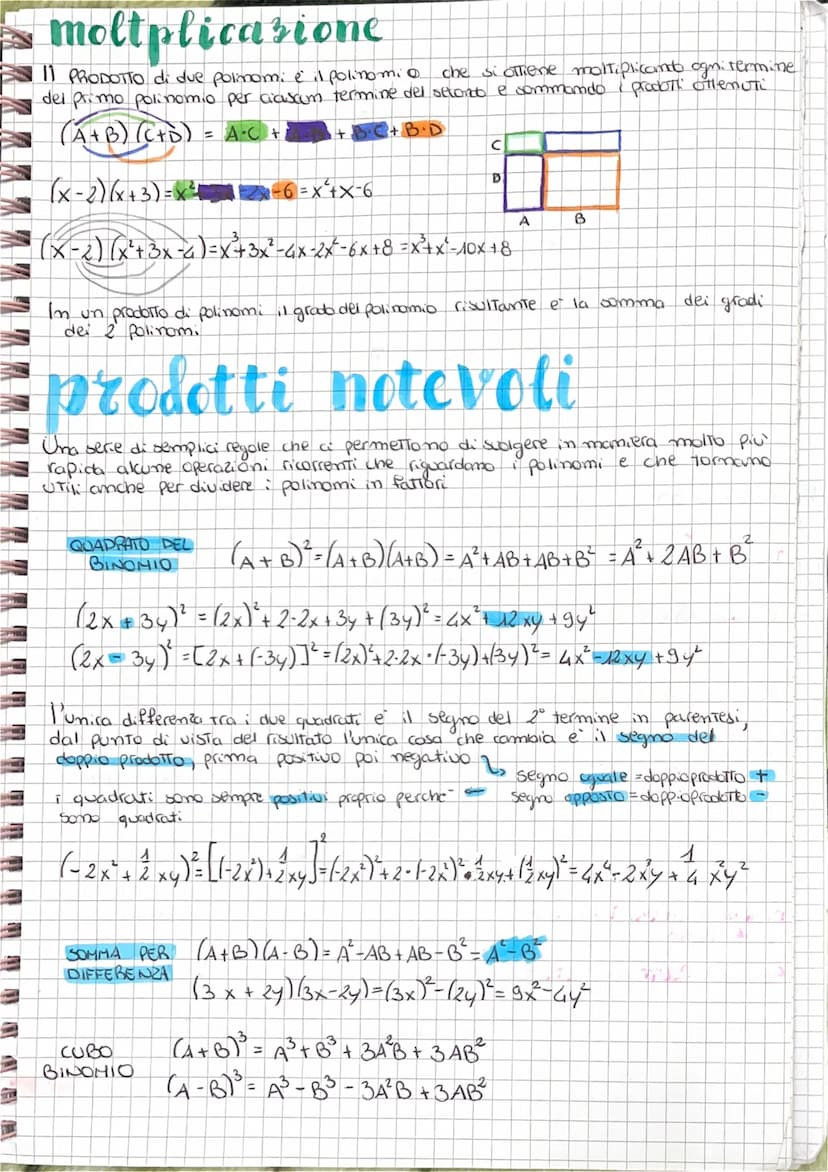 moltplicazione
Il PRODOTTO di due polinomi è il polinomio che si ottiene moltiplicando ogni termine
del primo polinomio per ciascun termine del secondo e sommando i prodotti ottenuti
(A+B)(C+D) = A·C + + B·C + B·D
C
D
A B
(x-2)(x+3)=x² -2x -6 = x²+x-6
(x-2)(x²+3x-4)=x³+3x²-4x-2x²-6x+8 = x³+x²-10x+8
In un prodotto di polinomi il grado del polinomio risultante è la somma dei gradi
dei 2 polinomi
prodotti notevoli
Una serie di semplici regole che ci permettono di svolgere in maniera molto più
rapida alcune operazioni ricorrenti che riguardano i polinomi e che tornano
utili anche per dividere i polinomi in fattori
QUADRATO DEL
BINOMIO
(A+B)²=(A+B)(A+B) = A²+AB+AB+B² = A²+2AB+B²
(2x+3y)² = (2x)²+2·2x+3y+(3y)² = 4x²+12xy+9y²
(2x-3y)² =[2x+(-3y)]²=(2x)²+2·2x·(-3y)+(3y)²= 4x²-12xy+9y²
l'unica differenza tra i due quadrati è il segno del 2° termine in parentesi,
dal punto di vista del risultato l'unica cosa che cambia è il segno del
doppio prodotto, prima positivo poi negativo ↳ segno uguale = doppio prodotto +
i quadrati sono sempre positivi proprio perchè ← segno opposto = doppio prodotto -
sono quadrati
(-2x²+1/2xy)²=[(-2x²)+1/2xy]²=(-2x²)²+2·(-2x²)²·1/2xy+(1/2xy)²=4x⁴-2x³y+1/4x²y²
SOMMA PER
DIFFERENZA
(A+B)(A-B)= A²-AB+AB-B²=A²-B²
(3x+2y)(3x-2y)=(3x)²-(2y)²=9x²-4y²
CUBO
BINOMIO
(A+B)³ = A³+B³+3A²B+3AB²
(A-B)³= A³-B³-3A²B+3AB²